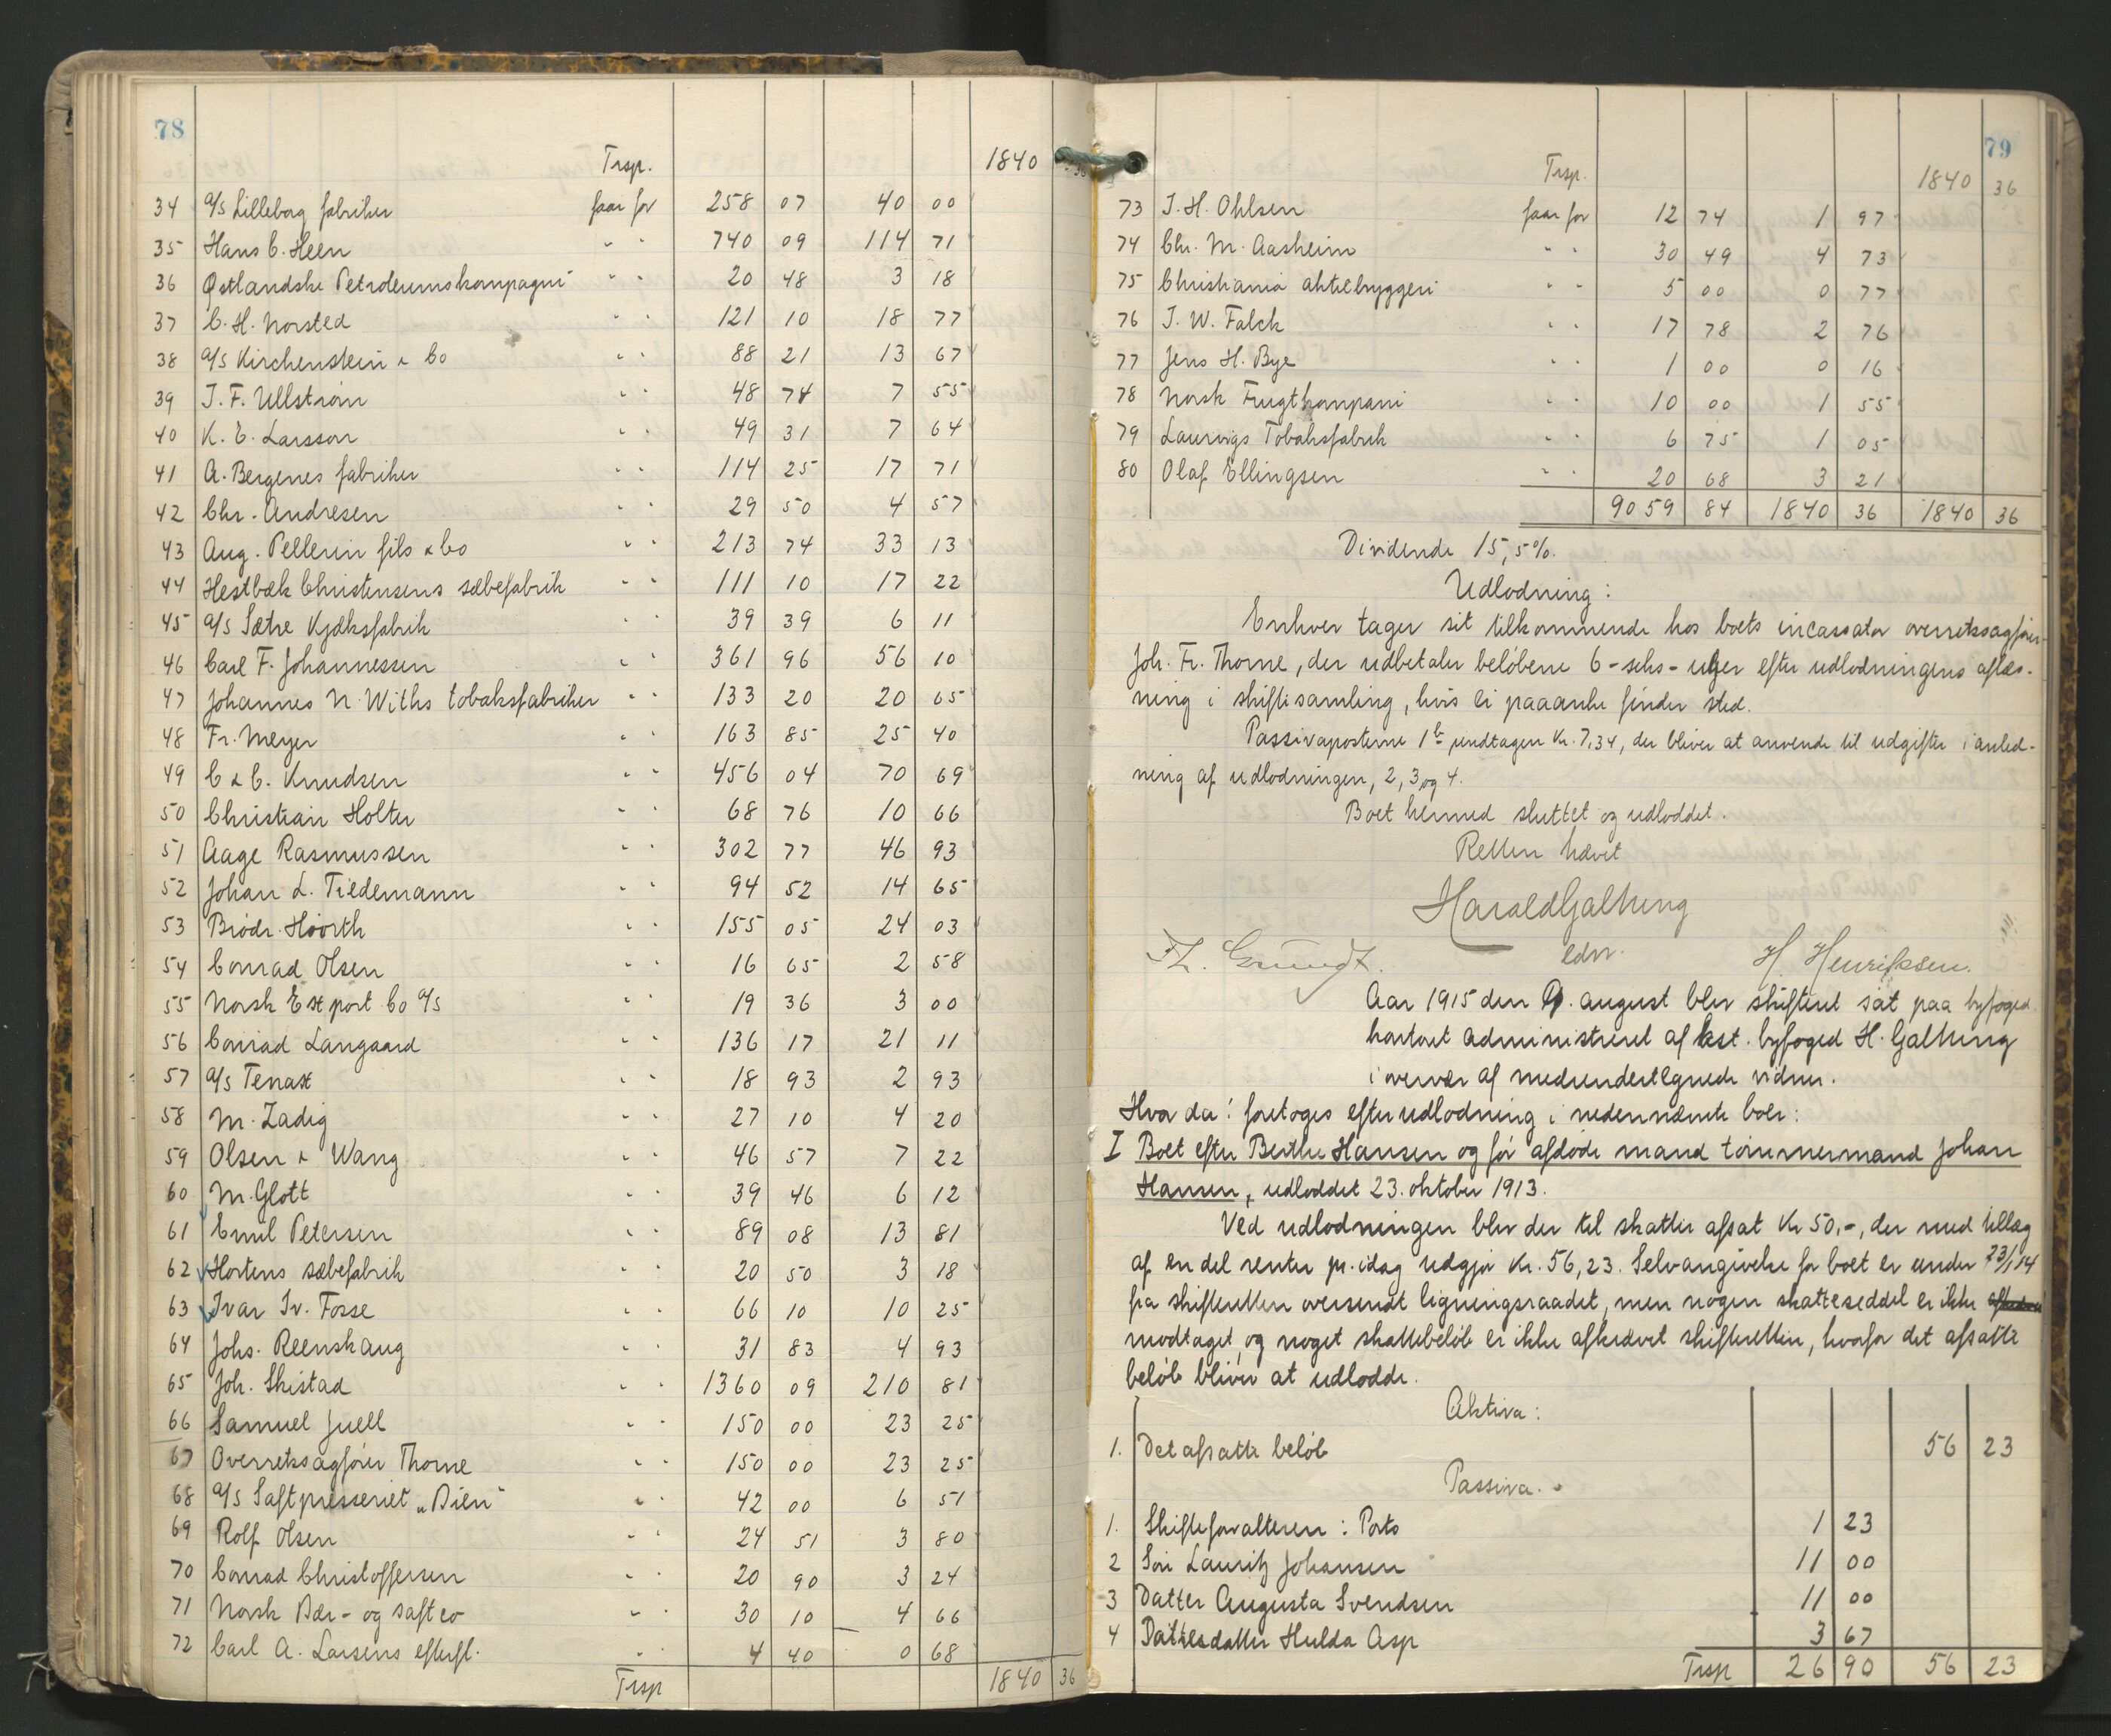 78
Trsp. 1840 36
34 A/s Lilleborg fabriker faar for 258 07 40 00
35 Hans C. Heen " " 740 09 114 71
36 Østlandske Petroleumskompagni " " 20 48 3 18
37 C. H. Norsted " " 121 10 18 77
38 A/s Kirchenstein & Co " " 88 21 13 67
39 J. F. Ullström " " 48 74 7 55
40 K. E. Larsson " " 49 31 7 64
41 A. Bergenes fabriker " " 114 25 17 71
42 Chr. Andresen " " 29 50 4 57
43 Aug. Pellerin fils & Co " " 213 74 33 13
44 Hestbæk Christensens sæbefabrik " " 111 10 17 22
45 A/s Sætre Kjæksfabrik " 39 39 6 11
46 Carl F. Johannessen " " 361 96 56 10
47 Johannes N. Withs tobaksfabriker " " 133 20 20 65
48 Fr. Meyer " " 163 85 25 40
49 C & C. Knudsen " " 456 04 70 69
50 Christian Holter " " 68 76 10 66
51 Aage Rasmussen " " 302 77 46 93
52 Johan L. Tiedemann " " 94 52 14 65
53 Brødr. Høorth " " 155 05 24 03
54 Conrad Olsen " " 16 65 2 58
55 Norsk Export Co A/s " " 19 36 3 00
56 Conrad Langaard " " 136 17 21 11
57 A/s Tenax " " 18 93 2 93
58 M. Zadig " " 27 10 4 20
59 Olsen & Wang " " 46 57 7 22
60 M. Glott " " 39 46 6 12
61 Emil Petersen " " 89 08 13 81
62 Hortens sæbefabrik " " 20 50 3 18
63 Ivar Iv. Fosse " " 66 10 10 25
64 Johs. Reenskaug " " 31 83 4 93
65 Joh. Skistad " " 1360 09 210 81
66 Samuel Juell " " 150 00 23 25
67 Overretssagfører Thorne " " 150 00 23 25
68 A/s Saftpresseriet „Bien" " " 42 00 6 51
69 Rolf Olsen " " 24 51 3 80
70 Conrad Christoffersen " " 20 90 3 24
71 Norsk Bær- og saft co " " 30 10 4 66
72 Carl A. Larsens efterfl. " " 4 40 0 68
Trsp 1840 36
79
Trsp. 1840 36
73 J. H. Ohlsen faar for 12 74 1 97
74 Chr. M. Aasheim " " 30 49 4 73
75 Christiania aktiebryggeri " " 5 00 0 77
76 J. W. Falck " " 17 78 2 76
77 Jens H. Bye " " 1 00 0 16
78 Norsk Frugtkompani " " 10 00 1 55
79 Laurvigs Tobaksfabrik " " 6 75 1 05
80 Olaf Ellingsen " " 20 68 3 21
9059 84 1840 36 1840 36
Dividende 15,5%.
Udlodning:
Enhver tager sit tilkommende hos boets incassator overretssagfører
Joh. Fr. Thorne, der udbetaler beløbene 6-seks-uger efter udlodningens aflæs-
ning i skiftesamling, hvis ei paaanke finder sted.
Passivaposterne 1b undtagen Kr. 7,34, der bliver at anvende til udgifter i anled-
ning af udlodningen, 2, 3 og 4.
Boet hermed sluttet og udloddet.
Retten hævet
Harald Galtung
edv.
H. Henriksen.
Fr. Grundt.
Aar 1915 den 9. august blev skifteret sat paa byfoged
kontoret administreret af kst. byfoged H. Galtung
i overvær af medundertegnede vidner.
Hvor da: foretoges efterudlodning i nedennævnte boer:
I Boet efter Berthe Hansen og før afdøde mand tømmermand Johan
Hansen, udloddet 23. oktober 1913.
Ved udlodningen blev der til skatter afsat Kr 50,-, der med tillæg
af en del renter pr. idag udgjør Kr. 56,23. Selvangivelse for boet er under 23/1 14
fra skifteretten oversendt ligningsraadet, men nogen skatteseddel er ikke
modtaget, og noget skattebeløb er ikke afkrævet skifteretten, hvorfor det afsatte
beløb bliver at udlodde.
Aktiva:
1. Det afsatte beløb 56 23
Passiva.
1. Skifteforvalteren: Porto 1 23
2 Søn Lauritz Johansen 11 00
3 Datter Augusta Svendsen 11 00
4 Datterdatter Hulda Asp 3 67
Trsp 26 90 56 23